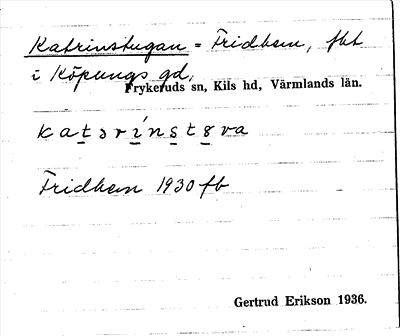 Katrinstugan = Fridhem, fbt
i Köpungs gd,
Frykeruds sn, Kils hd, Värmlands län.
katərínstɞva
Fridhem 1930 fb
Gertrud Erikson 1936.